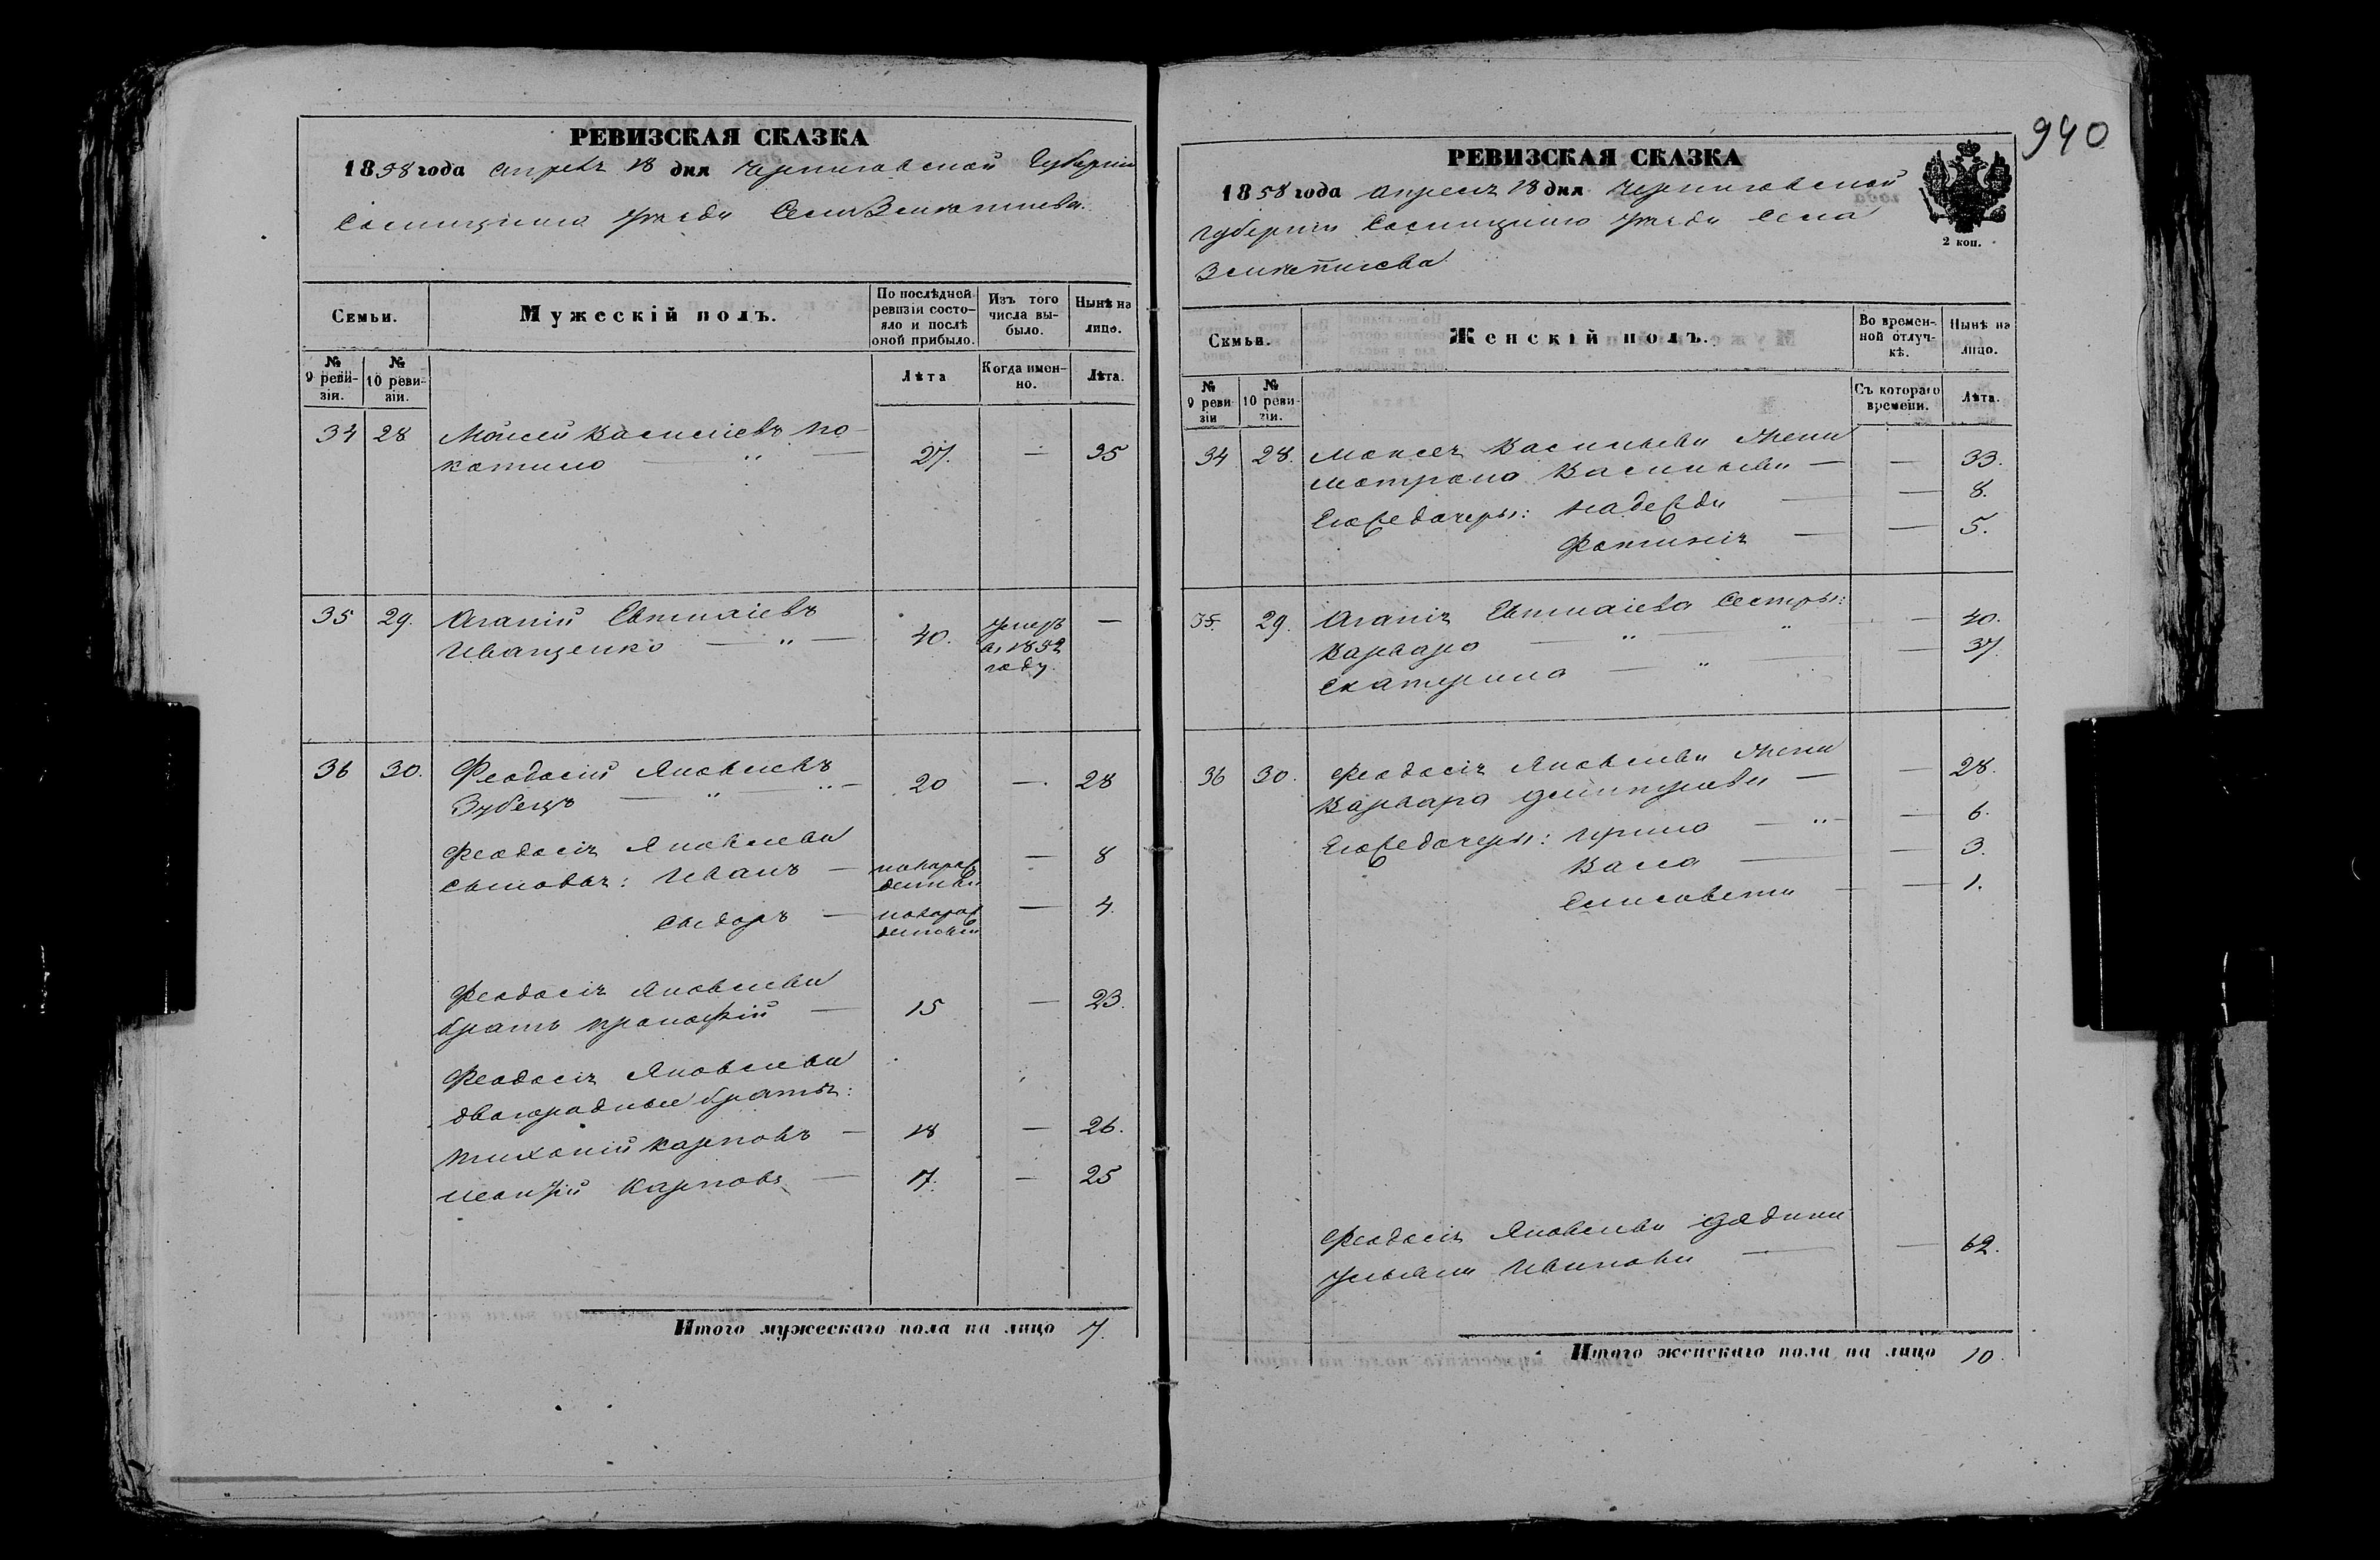 РЕВИЗСКАЯ СКАЗКА
1858 года Апреля 18 дня Черниговской Губернии
Сосницкаго уезда Села
Семьи.
Мужескій полъ.
По послѣдней ревизіи состояло и послѣ оной прибыло.
Изъ того числа выбыло.
Нынѣ на лицо.
№ 9 ревизіи.
№ 10 ревизіи.
Лѣта
Когда именно.
Лѣта.
34 28 Моисей Васильевъ
27. — 35
35 29. Агапій Евтихіевъ
Иващенко — " — 40. Умеръ въ 1852 году. —
36 30. Феодосій Яковлевъ
Зубецъ — " — " — 20 — 28
Феодосія Яковлева
сыновья: Иванъ — новорожденный — 8
Сидоръ — новорожденный — 4.
Феодосія Яковлева
братъ Прокофій — 15 — 23.
Феодосія Яковлева
двоюродные братья:
Тихоній Карповъ — 18 — 26.
Карповъ — 17. — 25
Итого мужескаго пола на лицо 7.
940
РЕВИЗСКАЯ СКАЗКА
1858 года Апреля 18 дня Черниговской
губернии Сосницкаго уезда Села
2 коп.
Семьи.
Женскій полъ.
Во временной отлучкѣ.
Нынѣ на лицо.
№ 9 ревизіи
№ 10 ревизіи.
Съ котораго времени.
Лѣта.
34 28. Моисея Васильева жена
Матрона Васильева — — 33.
Его же дочери: Надежда — — 8.
Фотинія — — 5.
35. 29. Агапія Евтихіева Сестры:
Варвара — " — " — 40.
Екатерина — " — — 37.
36 30. Феодосія Яковлева жена
Варвара Дмитриева — — 28.
Его же дочери: Ирина — " — — 6.
Васса — — 3.
Елисавета — — 1.
Феодосія Яковлева
Ульяна Иванова — — 62.
Итого женскаго пола на лицо 10.